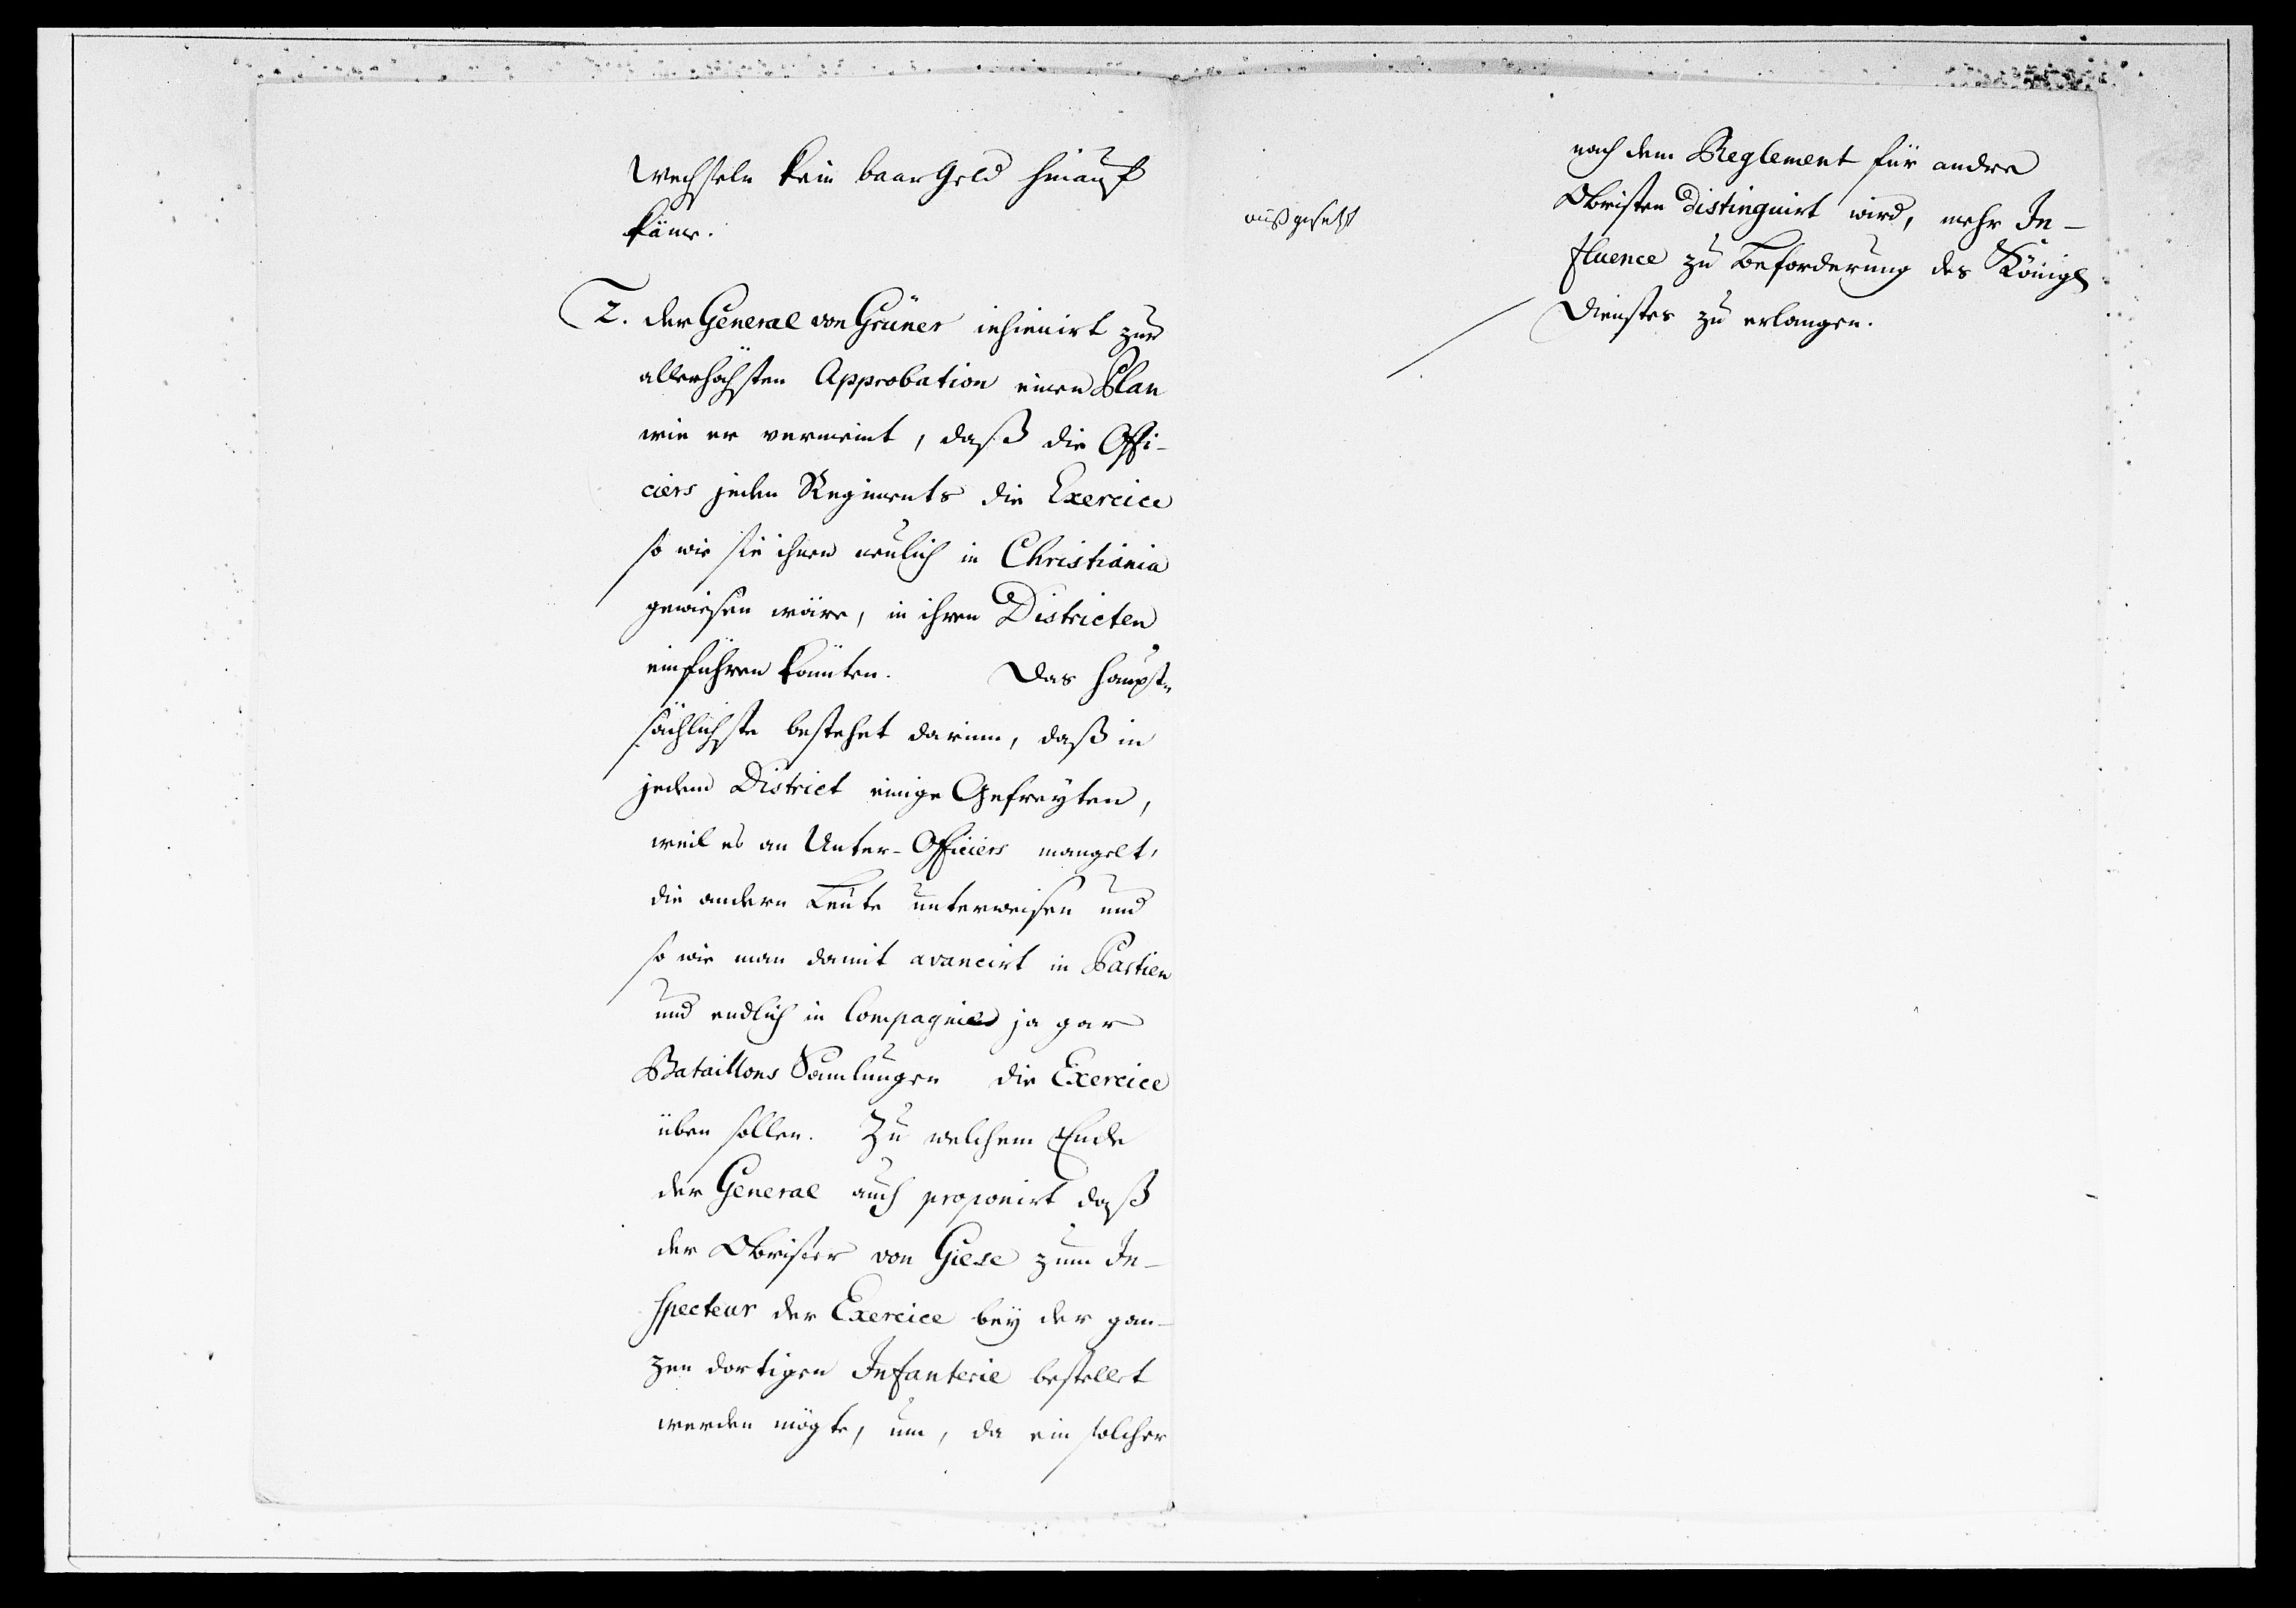 Wechseln kein baar Geld hinauf
käme.
2. der General von Grüner inhivirt zur
allerhöchsten Approbation einen Plan
wie er vermeint, daß die Offi-
ciers jeden Regiments die Exercice
so wie sie ihnen neulich in Christiania
gewiesen wäre, in ihren Districten
einführen könten. Das haupt-
sächlichste bestehet darinn, daß in
jedem District einige Gefreyten,
weil es an Unter-Officiers mangelt,
die andern Leute unterweisen und
so wie man damit avancirt in Partien
und endlich in Compagnie ja gar
Bataillons Samlungen die Exercice
üben sollen. Zu welchem Ende
der General auch proponirt daß
der Obrister von Giese zum In-
specteur der Exercice bey der gan-
zen dortigen Infanterie bestellet
werden mögte, um, da ein solcher
ausgesetzt
nach dem Reglement für andre
Obristen distinguirt wird, mehr In-
fluence zu Beforderung des Königl.
Dienstes zu erlangen.